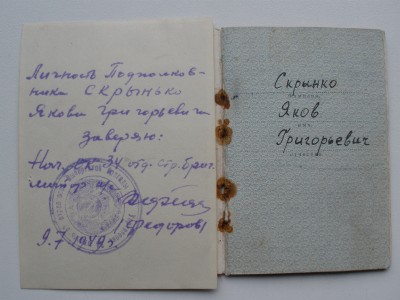 Личность Подполков-
ника СКРЫНЬКО
Якова Григорьевича
заверяю:
Нач. 34 отд. стр. бриг.
Федоров
9.7 1949г
Скрынко
Яков
Григорьевич